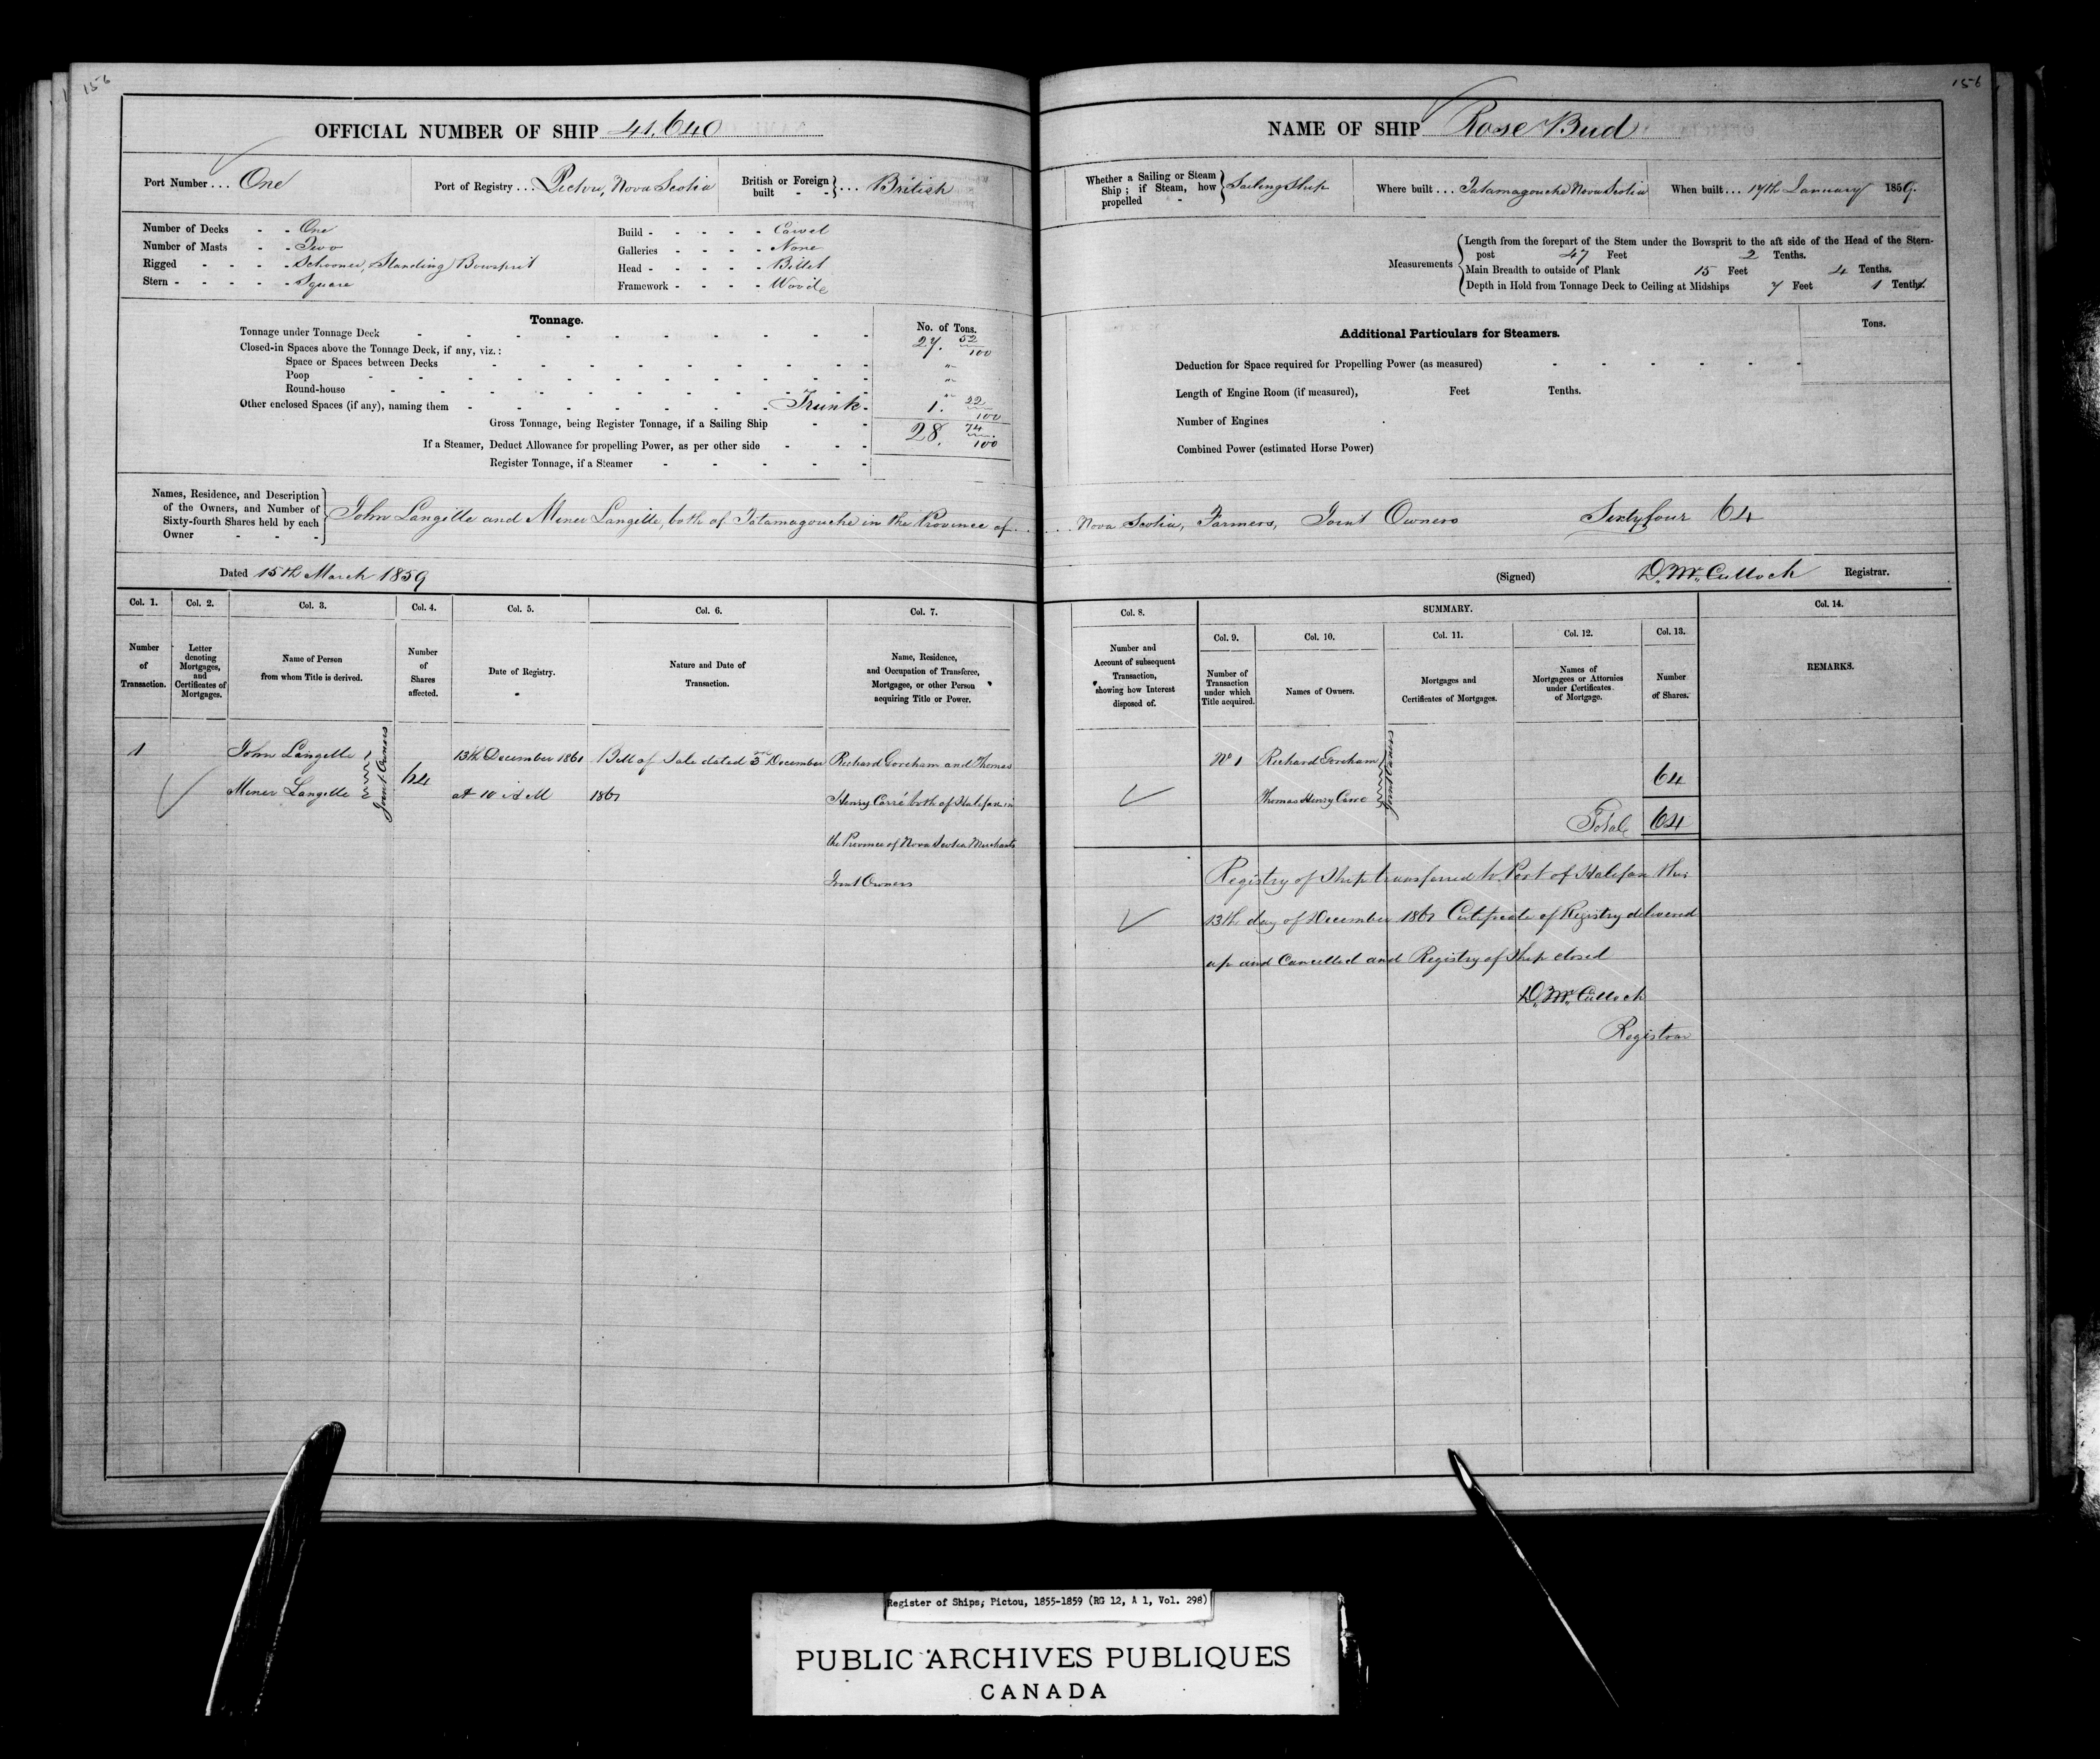 156
OFFICIAL NUMBER OF SHIP 41.640
Port Number ... One
Port of Registry ... Pictou, Nova Scotia
British or Foreign built - - } ... British
Number of Decks - - One
Number of Masts - - Two
Rigged - - - - Schooner, Standing Bowsprit
Stern - - - - - Square
Build - - - - - Carvel
Galleries - - - - None
Head - - - - - Billet
Framework - - - - Wood
Tonnage.
No. of Tons.
Tonnage under Tonnage Deck 27. 52/100
Closed-in Spaces above the Tonnage Deck, if any, viz.:
Space or Spaces between Decks "
Poop "
Round-house "
Other enclosed Spaces (if any), naming them Trunk 1. 22/100
Gross Tonnage, being Register Tonnage, if a Sailing Ship 28. 74/100
If a Steamer, Deduct Allowance for propelling Power, as per other side
Register Tonnage, if a Steamer
Names, Residence, and Description
of the Owners, and Number of
Sixty-fourth Shares held by each
Owner - - -
John Langille and Miner Langille, both of Tatamagouche in the Province of
Dated 15th March 1859
Col. 1. Col. 2. Col. 3. Col. 4. Col. 5. Col. 6. Col. 7.
Number of Transaction.
Letter denoting Mortgages, and Certificates of Mortgages.
Name of Person from whom Title is derived.
Number of Shares affected.
Date of Registry.
Nature and Date of Transaction.
Name, Residence, and Occupation of Transferee, Mortgagee, or other Person acquiring Title or Power.
1
John Langille
Miner Langille
Joint Owners
64
13th December 1861
at 10 A M
Bill of Sale dated 3rd December
1861
Richard Goreham and Thomas
Henry Carré both of Halifax in
the Province of Nova Scotia Merchants
Joint Owners
156
NAME OF SHIP Rose Bud
Whether a Sailing or Steam Ship; if Steam, how propelled - } Sailing Ship
Where built ... Tatamagouche Nova Scotia
When built ... 17th January 1859.
Measurements
Length from the forepart of the Stem under the Bowsprit to the aft side of the Head of the Stern-
post 47 Feet 2 Tenths.
Main Breadth to outside of Plank 15 Feet 4 Tenths.
Depth in Hold from Tonnage Deck to Ceiling at Midships 7 Feet 1 Tenths.
Additional Particulars for Steamers.
Tons.
Deduction for Space required for Propelling Power (as measured)
Length of Engine Room (if measured), Feet Tenths.
Number of Engines
Combined Power (estimated Horse Power)
Nova Scotia, Farmers, Joint Owners Sixtyfour 64
(Signed) D. McCulloch Registrar.
Col. 8. SUMMARY. Col. 14.
Col. 9. Col. 10. Col. 11. Col. 12. Col. 13.
Number and Account of subsequent Transaction, showing how Interest disposed of.
Number of Transaction under which Title acquired.
Names of Owners.
Mortgages and Certificates of Mortgages.
Names of Mortgagees or Attornies under Certificates of Mortgage.
Number of Shares.
REMARKS.
No 1
Richard Goreham
Thomas Henry Carré
Joint Owners
64
Total 64
Registry of Ship transferred to Port of Halifax this
13th day of December 1861 Certificate of Registry delivered
up and Cancelled and Registry of Ship closed
D. McCulloch
Registrar
Register of Ships; Pictou, 1855-1859 (RG 12, A 1, Vol. 298)
PUBLIC ARCHIVES PUBLIQUES
CANADA